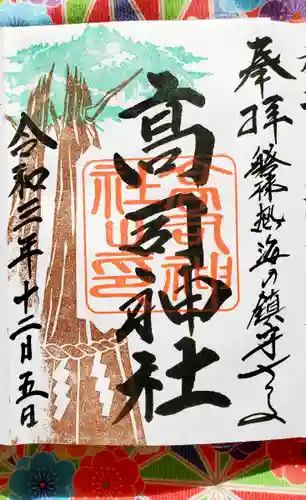 奉拝
磐梯熱海の鎮守さま
高司神社
高司神社之印
令和三年十二月五日